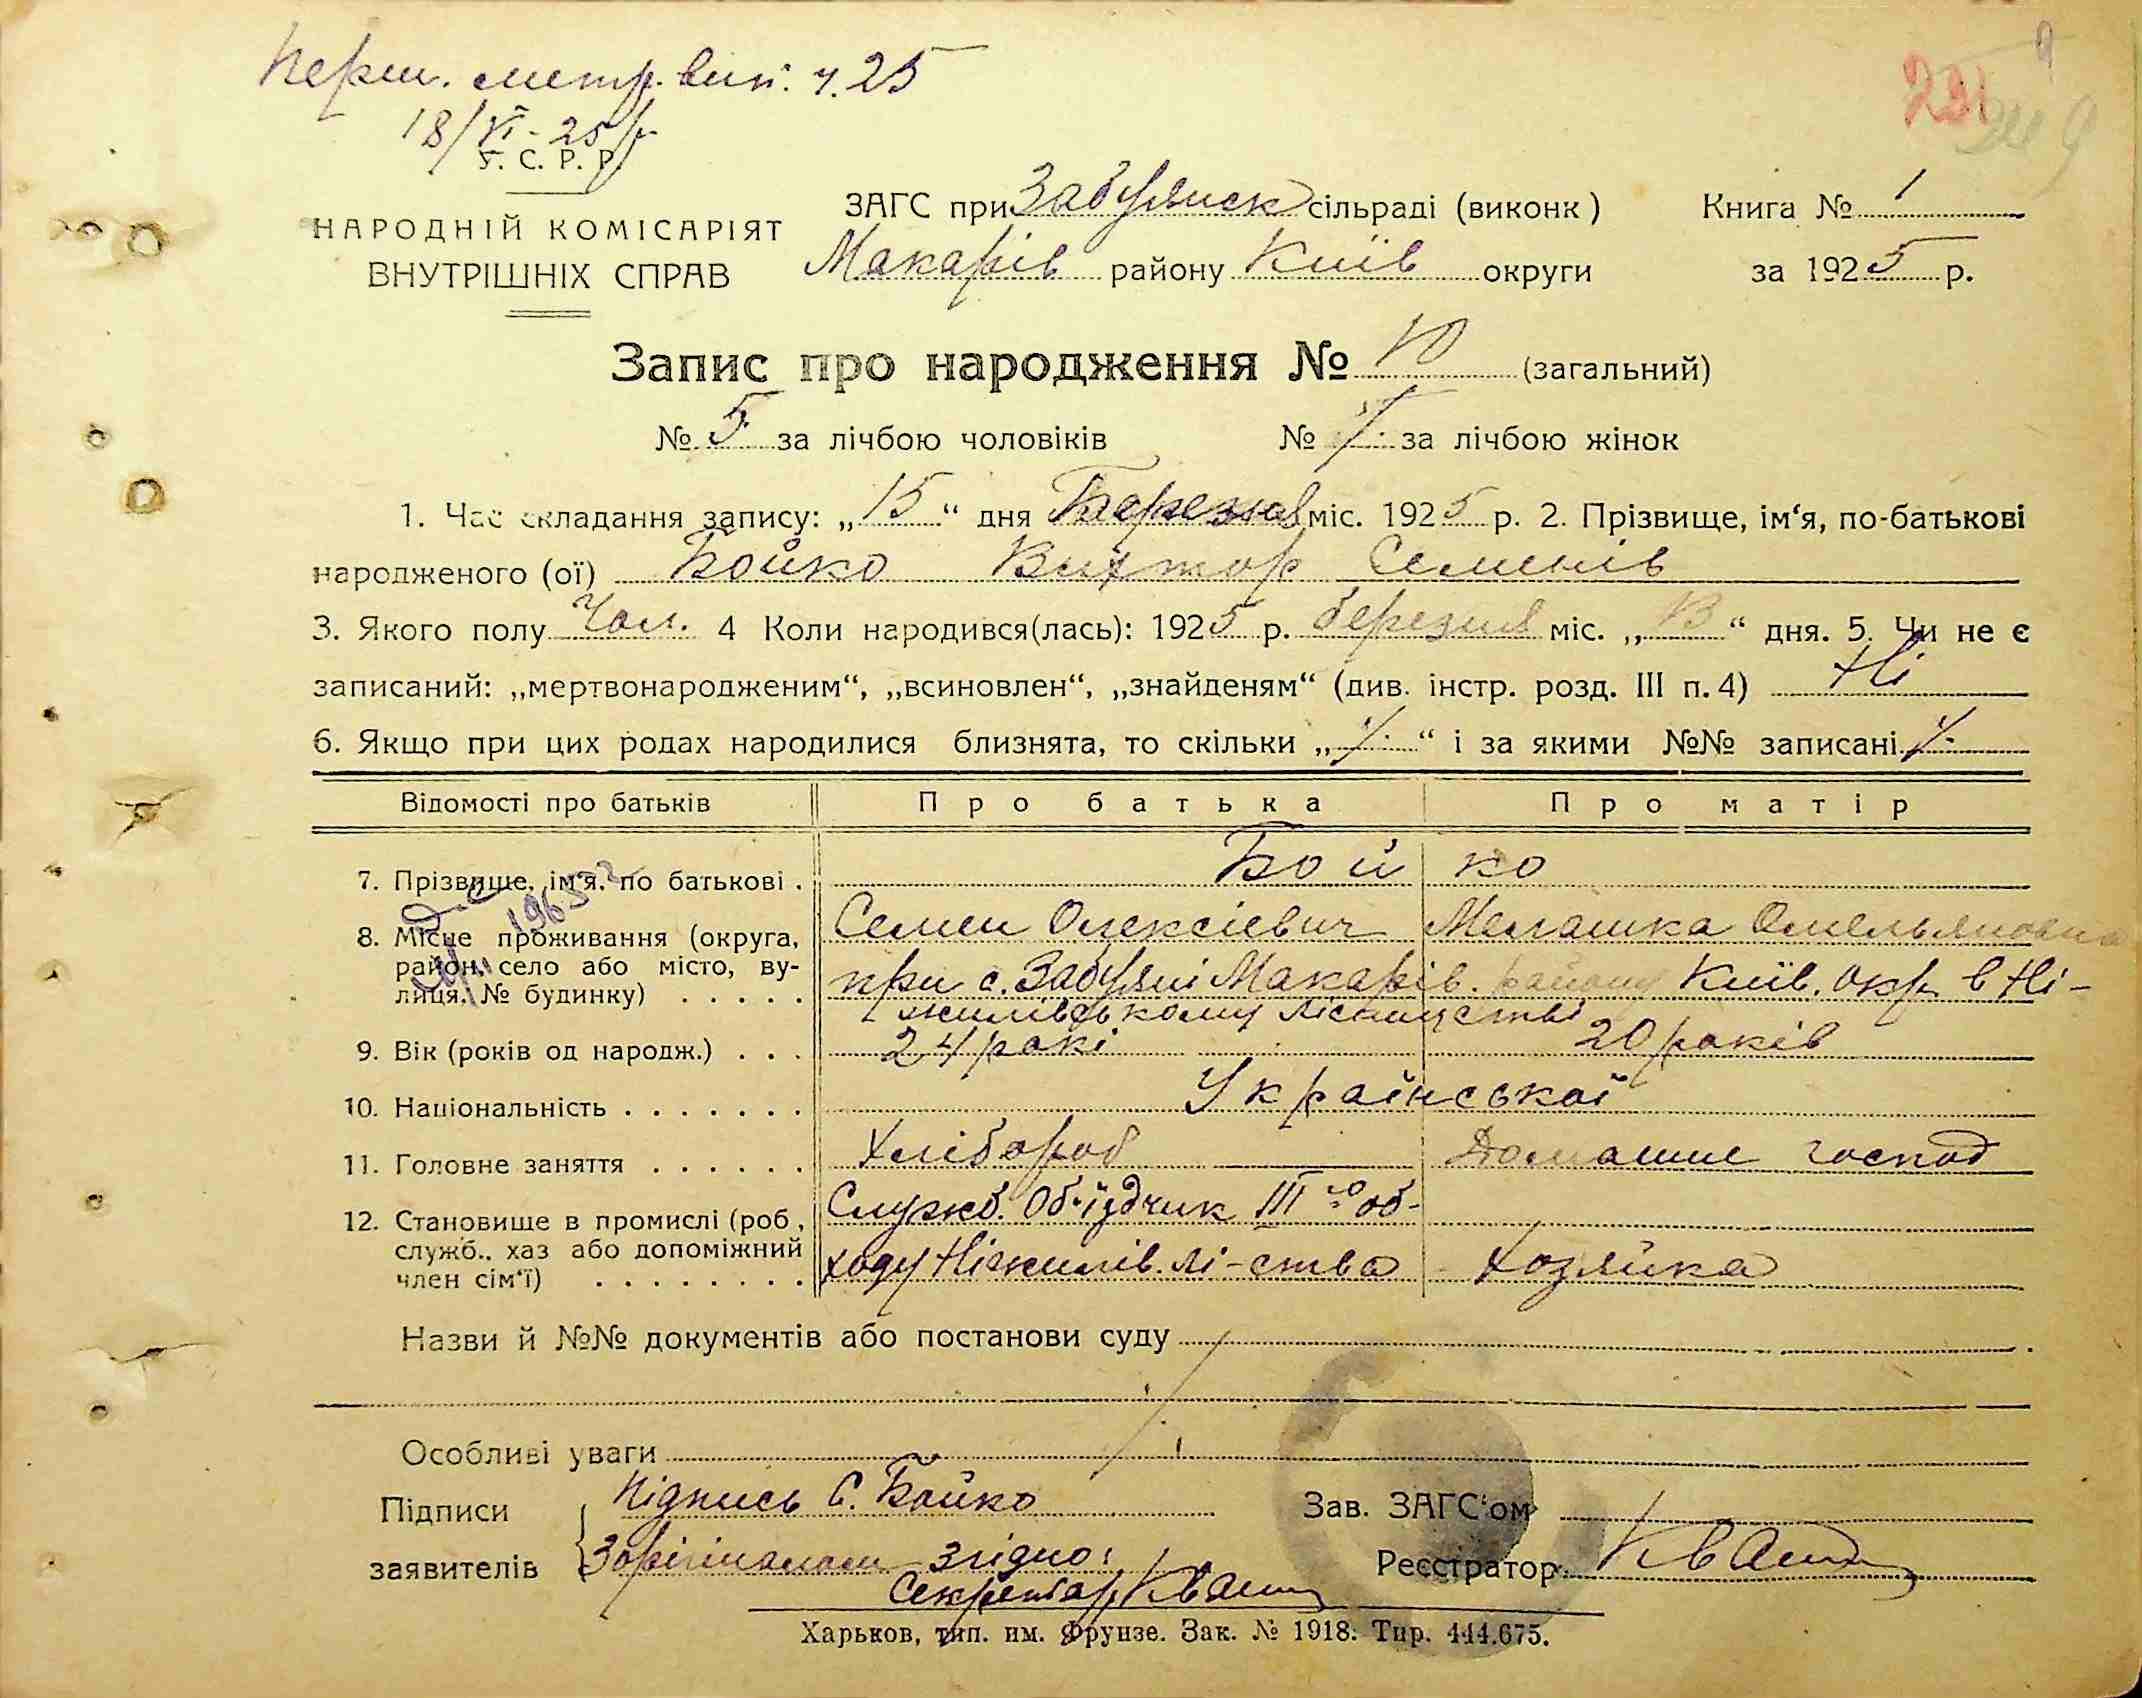 Перш. метр. вип. ч. 25
18/VI - 25 р.
У. С. Р. Р.
НАРОДНІЙ КОМІСАРІЯТ
ВНУТРІШНІХ СПРАВ
ЗАГС при Забуянск сільраді (виконк)
Макарів району Київ округи
Книга № 1
за 1925 р.
Запис про народження № 10 (загальний)
№ 5 за лічбою чоловіків № за лічбою жінок
1. Час складання запису: „15“ дня Березня міс. 1925 р. 2. Прізвище, ім‘я, по-батькові
народженого (ої) Бойко Віктор Семенів
3. Якого полу Чол. 4 Коли народився(лась): 1925 р. березня міс. „ “ дня. 5. Чи не є
записаний: „мертвонародженим“, „всиновлен“, „знайденям“ (див. інстр. розд. III п. 4) Ні
6. Якщо при цих родах народилися близнята, то скільки „ “ і за якими №№ записані
Відомості про батьків Про батька Про матір
7. Прізвище, ім‘я, по батькові . Бойко
Семен Олексієвич Мелашка Омельяновна
8. Місце проживання (округа, район, село або місто, вулиця, № будинку) . . . . .
при с. Забуянні Макарів. району Київ. окр. в Ні-
жилівському лісництві
9. Вік (років од народж.) . . . 24 рокі 20 років
10. Національність . . . . . . . Української
11. Головне заняття . . . . . . Хлібороб Домашне господ
12. Становище в промислі (роб, служб., хаз або допоміжний член сім‘ї) . . . . . . . .
Службб. Об‘їздчик III го об-
ходу Ніжилів. лі-ства Хозяйка
Назви й №№ документів або постанови суду
Особливі уваги
Підписи заявителів
Підпись С. Бойко
З орігіналом згідно:
Секретар Кваш
Зав. ЗАГС‘ом
Реєстратор Кваш
Харьков, тип. им. Фрунзе. Зак. № 1918. Тир. 444.675.